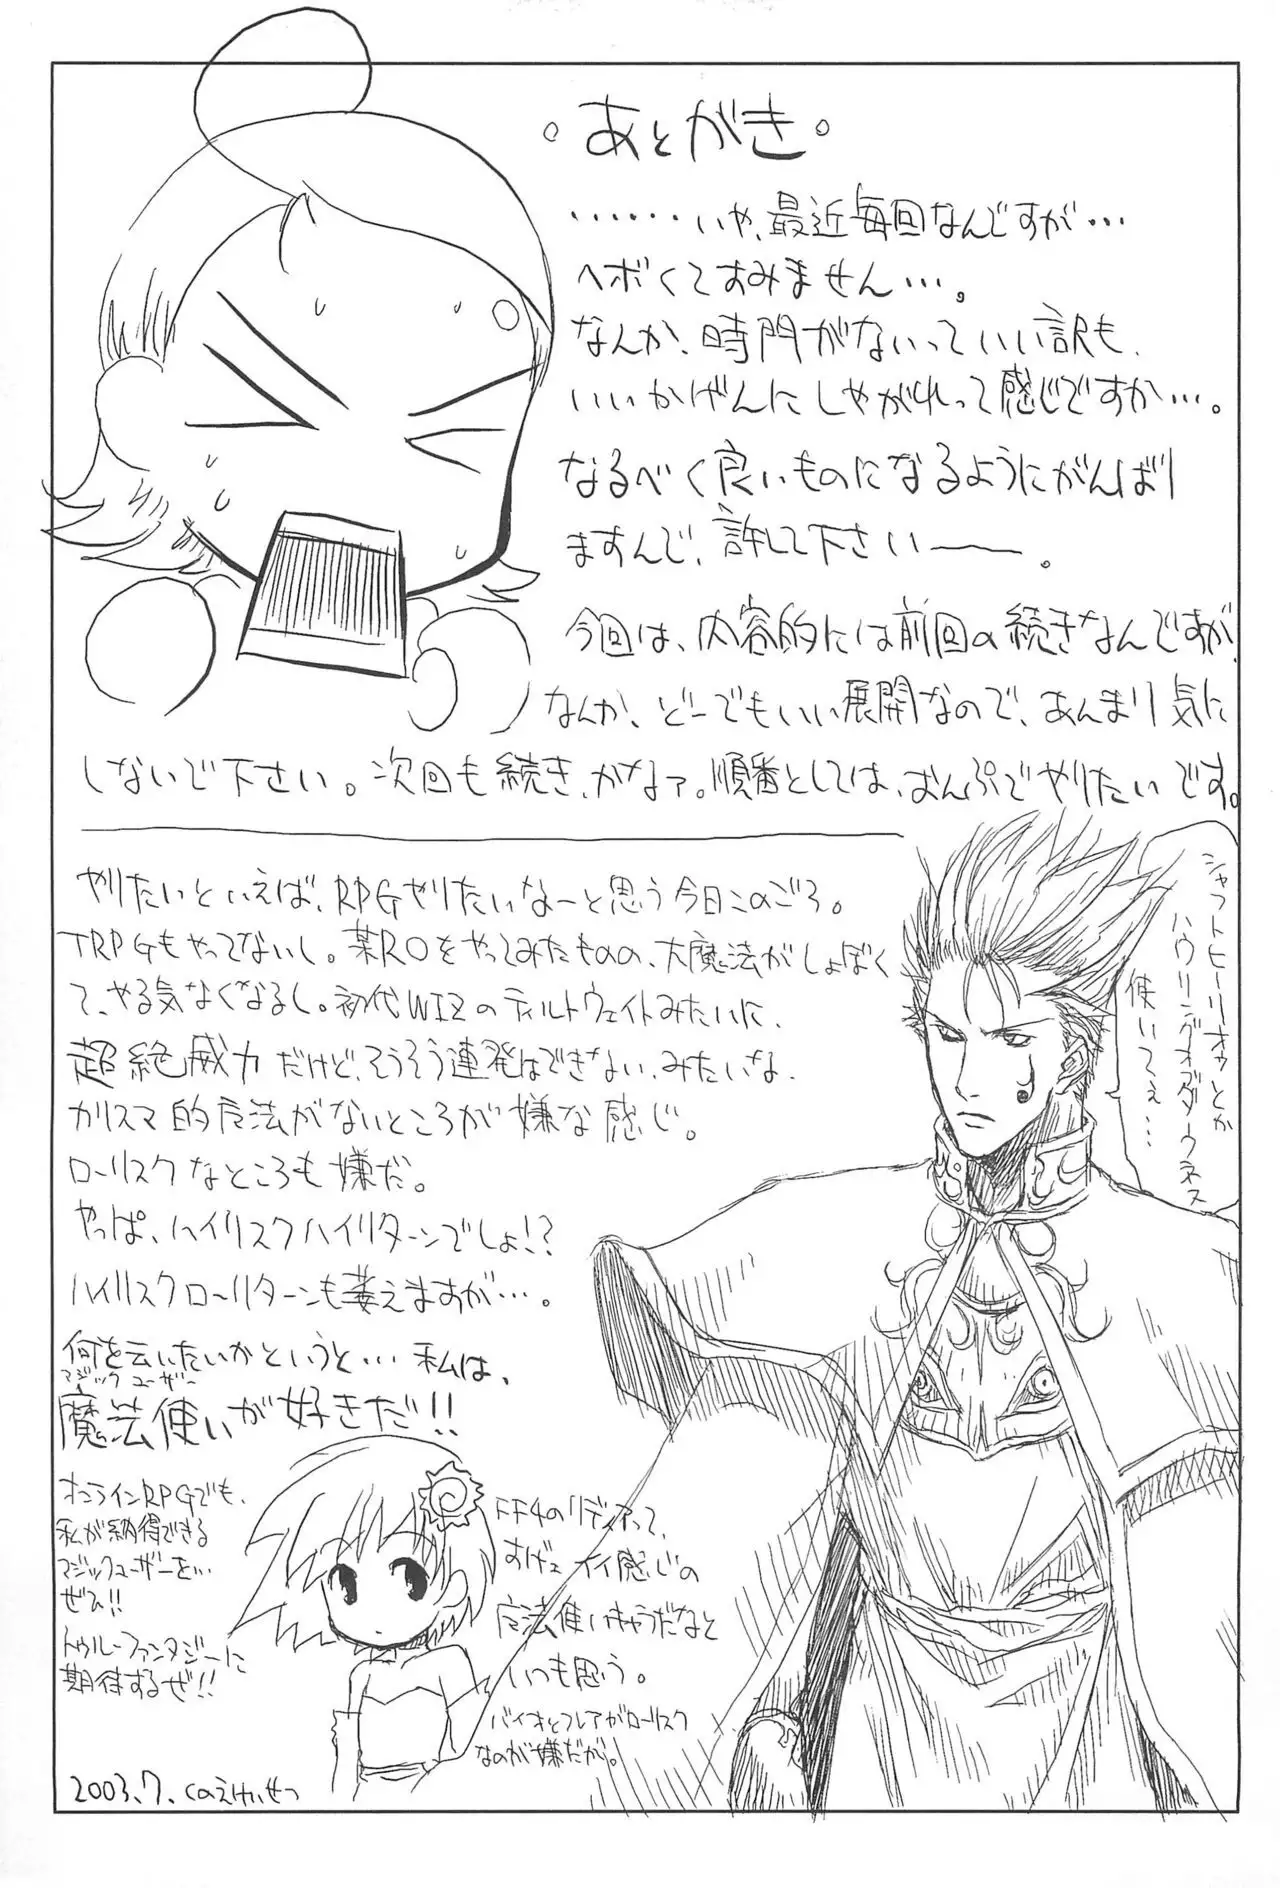 。あとがき。
・・・・・・いや、最近毎回なんですが・・・
ヘボくてすみません・・・。
なんか、時間がないっていい訳も、
いいかげんにしやがれって感じですか・・・。
なるべく良いものになるようにがんばり
ますんで、許して下さいーー。
今回は、内容的には前回の続きなんですが、
なんか、どーでもいい展開なので、あんまり気に
しないで下さい。次回も続き、かなァ。順番としては、おんぷでやりたいです。
やりたいといえば、RPGやりたいなーと思う今日このごろ。
TRPGもやってないし。某ROをやってみたものの、大魔法がしょぼく
て、やる気なくなるし。初代WIZのティルトウェイトみたいに、
超絶威力だけど、そうそう連発はできない、みたいな、
カリスマ的魔法がないところが嫌な感じ。
ローリスクなところも嫌だ。
やっぱ、ハイリスクハイリターンでしょ!?
ハイリスクローリターンも萎えますが・・・。
何を云いたいかというと・・・私は、
マジックユーザー
魔法使いが好きだ!!
オンラインRPGでも、
私が納得できる
マジックユーザーを・・・
ぜひ!!
トゥルーファンタジーに
期待するぜ!!
FF4のリディアって、
すげェイイ感じの
魔法使いキャラだなと
いつも思う。
バイオとフレアがローリスク
なのが嫌だが。
シャフトヒーリオゥとか
ハウリングオブダークネス
使いてェ・・・
2003.7.くのえけいせつ